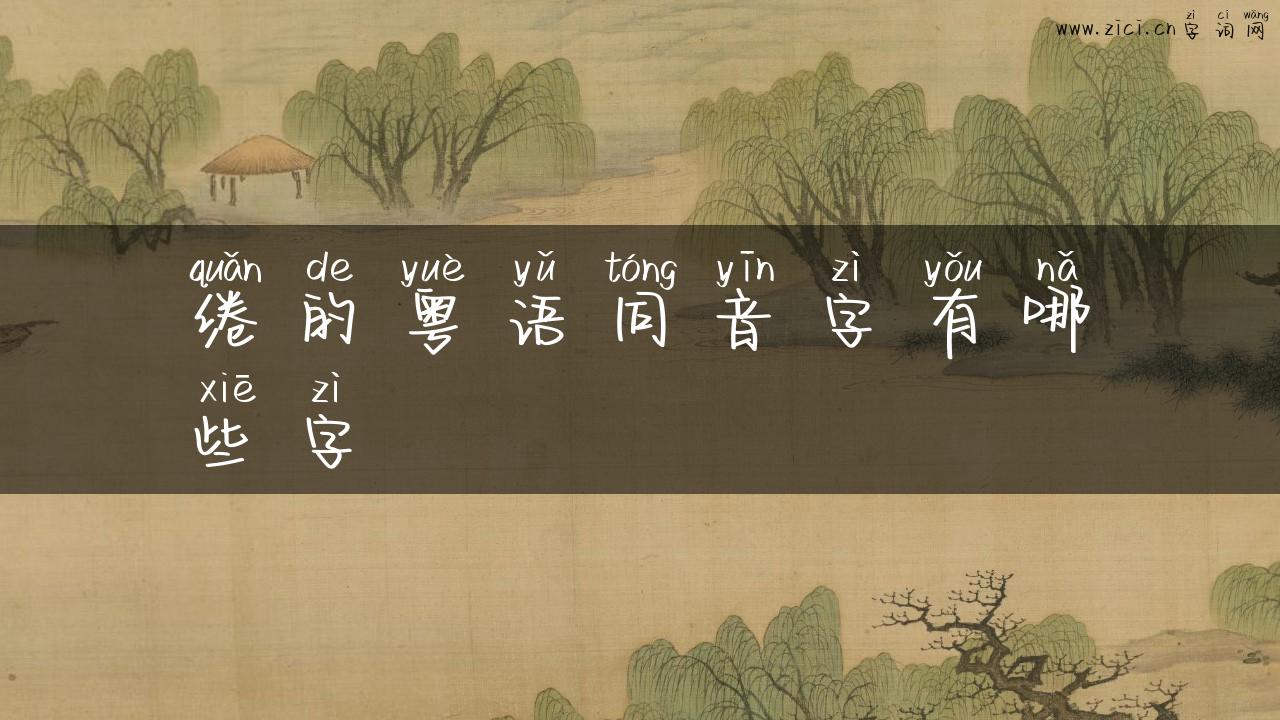 zì cí wǎng
www.zici.cn 字 词 网
quǎn de yuè yǔ tóng yīn zì yǒu nǎ
绻 的 粤 语 同 音 字 有 哪
xiē zì
些 字